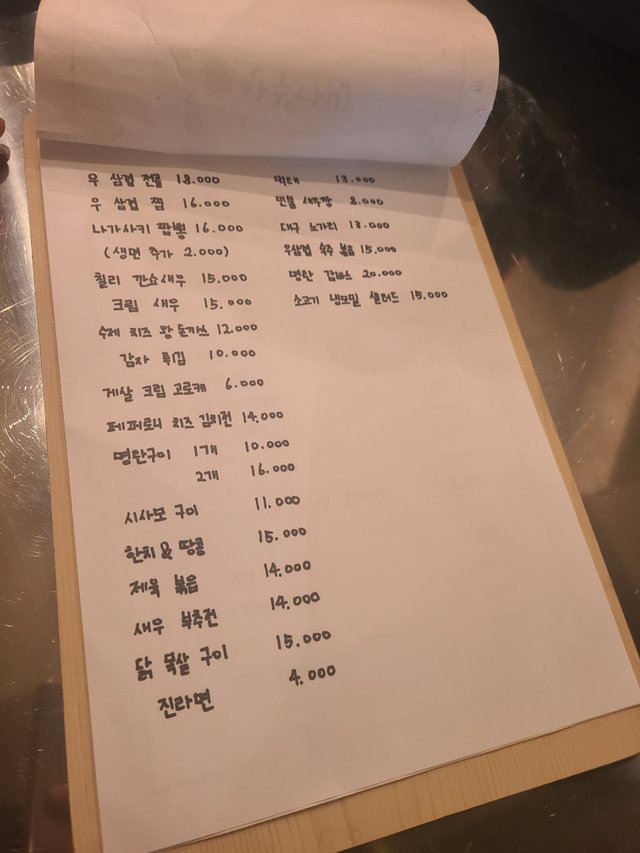 우 삼겹 전골 18.000
우 삼겹 찜 16.000
나가사키 짬뽕 16.000
(생면 추가 2.000)
칠리 깐쇼새우 15.000
크림 새우 15.000
수제 치즈 왕 돈까스 12.000
감자 튀김 10.000
게살 크림 고로케 6.000
페퍼로니 치즈 김치전 14.000
명란구이 1개 10.000
2개 16.000
시사모 구이 11.000
한치 & 땅콩 15.000
제육 볶음 14.000
새우 부추전 14.000
닭 목살 구이 15.000
진라면 4.000
먹태 13.000
민물 새우깡 8.000
대구 노가리 13.000
우삼겹 숙주 볶음 15.000
명란 감바스 20.000
소고기 냉모밀 샐러드 15.000